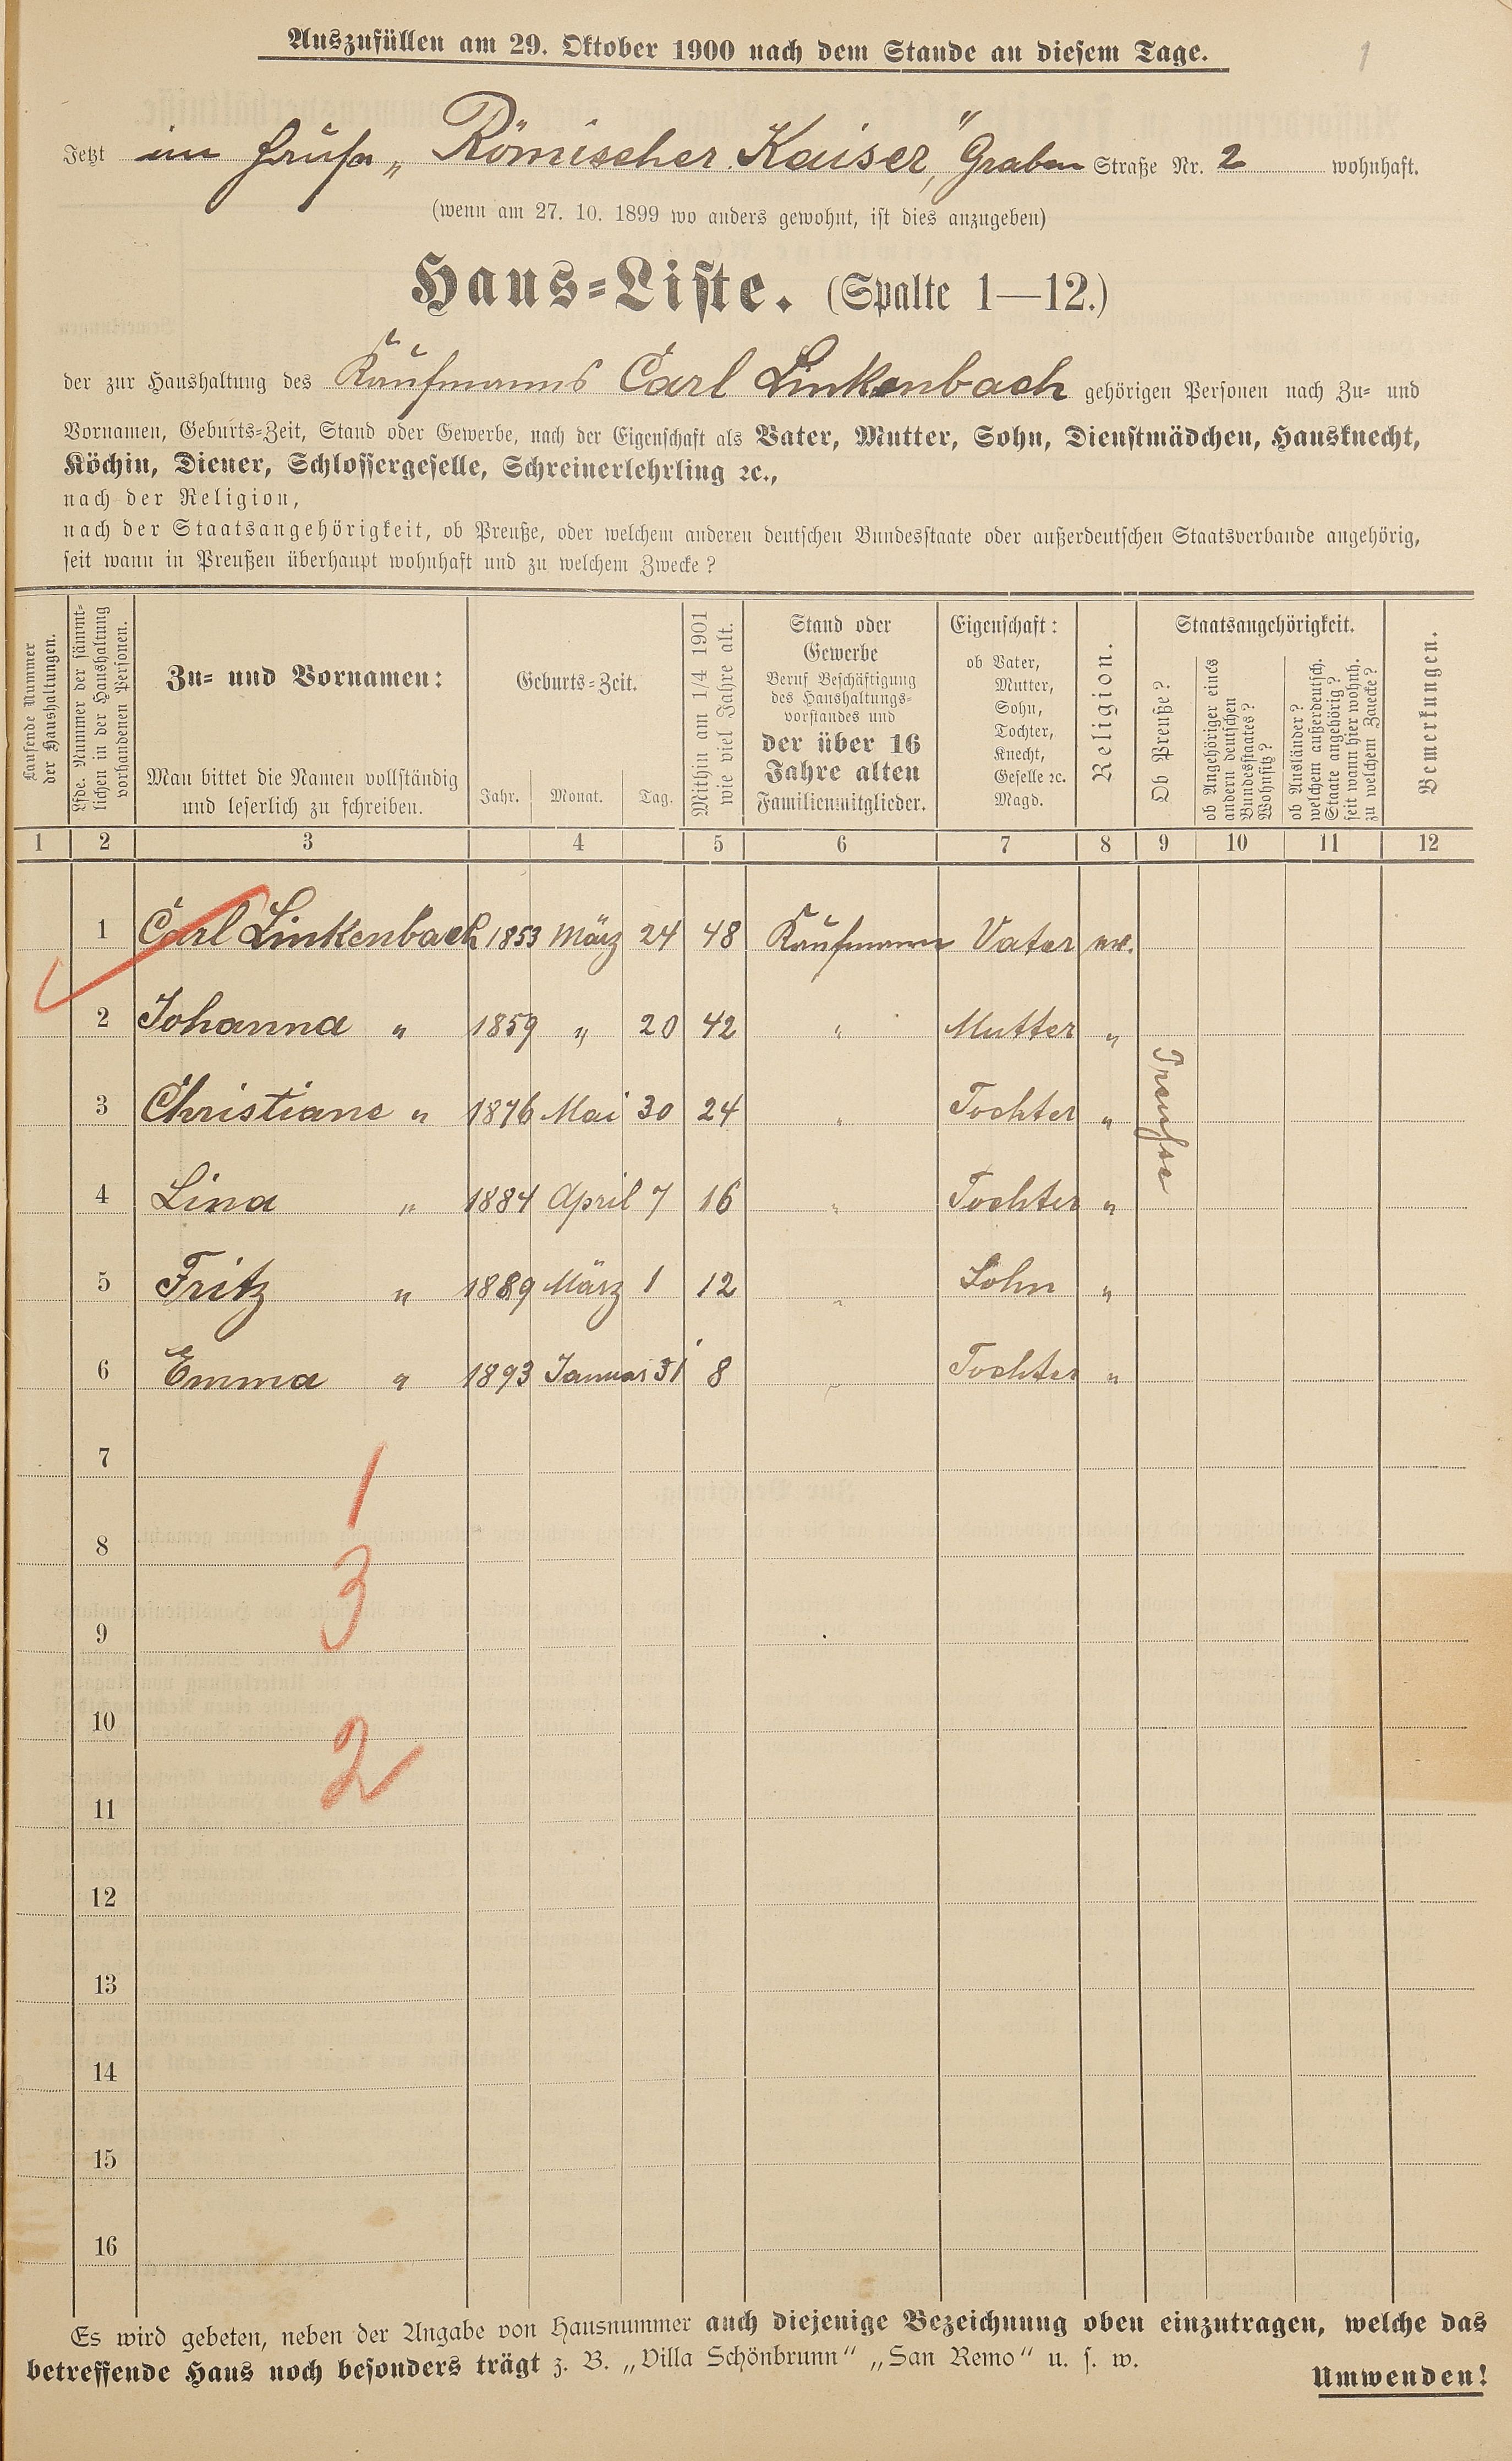 Auszufüllen am 29. Oktober 1900 nach dem Stande an diesem Tage.
1
Jetzt im Hause „Römischer Kaiser", Graben Straße Nr. 2 wohnhaft.
(wenn am 27. 10. 1899 wo anders gewohnt, ist dies anzugeben)
Haus=Liste. (Spalte 1—12.)
der zur Haushaltung des Kaufmanns Carl Linkenbach gehörigen Personen nach Zu= und
Vornamen, Geburts=Zeit, Stand oder Gewerbe, nach der Eigenschaft als Vater, Mutter, Sohn, Dienstmädchen, Hausknecht,
Köchin, Diener, Schlossergeselle, Schreinerlehrling ꝛc.,
nach der Religion,
nach der Staatsangehörigkeit, ob Preuße, oder welchem anderen deutschen Bundesstaate oder außerdeutschen Staatsverbande angehörig,
seit wann in Preußen überhaupt wohnhaft und zu welchem Zwecke?
Laufende Nummer
der Haushaltungen.
Lfde. Nummer der sämmt=
lichen in der Haushaltung
vorhandenen Personen.
Zu= und Vornamen:
Man bittet die Namen vollständig
und leserlich zu schreiben.
Geburts=Zeit.
Jahr. Monat. Tag.
Mithin am 1/4 1901
wie viel Jahre alt.
Stand oder
Gewerbe
Beruf Beschäftigung
des Haushaltungs=
vorstandes und
der über 16
Jahre alten
Familienmitglieder.
Eigenschaft:
ob Vater,
Mutter,
Sohn,
Tochter,
Knecht,
Geselle ꝛc.
Magd.
Religion.
Staatsangehörigkeit.
Ob Preuße?
ob Angehöriger eines
andern deutschen
Bundesstaates?
Wohnsitz?
ob Ausländer?
welchem außerdeutsch.
Staate angehörig?
seit wann hier wohnh.
zu welchem Zwecke?
Bemerkungen.
1 2 3 4 5 6 7 8 9 10 11 12
1 Carl Linkenbach 1853 März 24 48 Kaufmann Vater ev.
2 Johanna " 1859 " 20 42 " Mutter "
3 Christiane " 1876 Mai 30 24 " Tochter "
Preusse
4 Lina " 1884 April 7 16 " Tochter "
5 Fritz " 1889 März 1 12 " Sohn "
6 Emma " 1893 Januar 31 8 " Tochter "
7
1
8
3
9
10
2
11
12
13
14
15
16
Es wird gebeten, neben der Angabe von Hausnummer auch diejenige Bezeichnung oben einzutragen, welche das
betreffende Haus noch besonders trägt z. B. „Villa Schönbrunn" „San Remo" u. s. w.
Umwenden!